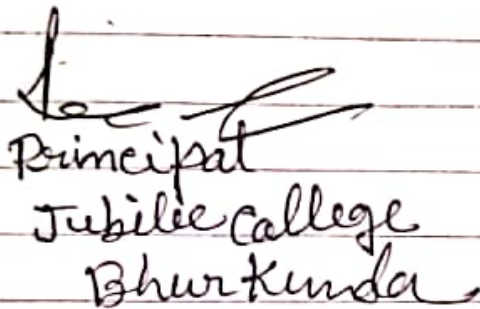 Principal
Jubilee College
Bhurkunda